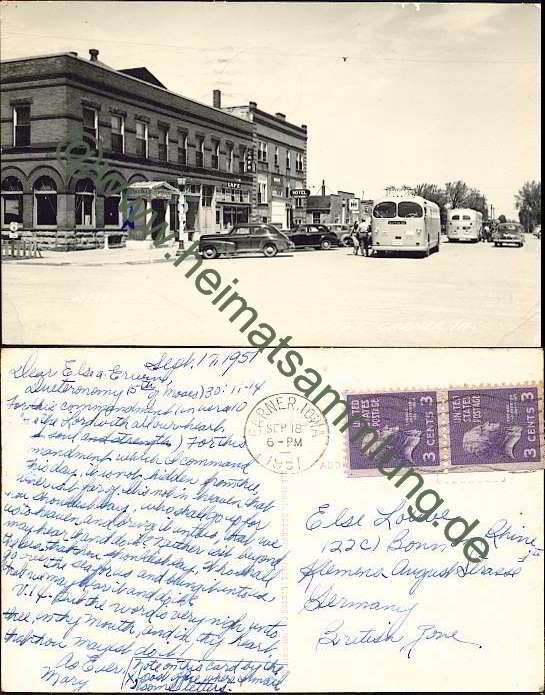 CAFE
HOTEL
www.heimatsammlung.de
Sept. 17, 1951
Dear Else & Erwin,
Deuteronomy (5th of Moses) 30:11-14
For this commandment (in vers 10
the Lord with all our heart
& soul and strength) For this
mandment which I command
this day, it is not hidden from thee,
neither is it far off. It is not in heaven that
thou shouldst say, who shall go up for
us to heaven and bring it unto us, that we
may hear it and do it? Neither is it beyond
the sea that thou shouldst say, Who shall
go over the sea for us and bring it unto us
that we may hear it and do it?
V.14. But the word is very nigh unto
thee, in thy mouth, and in thy heart,
that thou mayest do it.
As Ever,
Mary
Note on this card by the
X post office where I mail
some letters.
GARNER, IOWA
SEP 18
6 - PM
1951
UNITED STATES POSTAGE
3 CENTS 3
UNITED STATES POSTAGE
3 CENTS 3
Else
(22c) Bonn Rhine
Klemens August Strasse
Germany
British Zone.